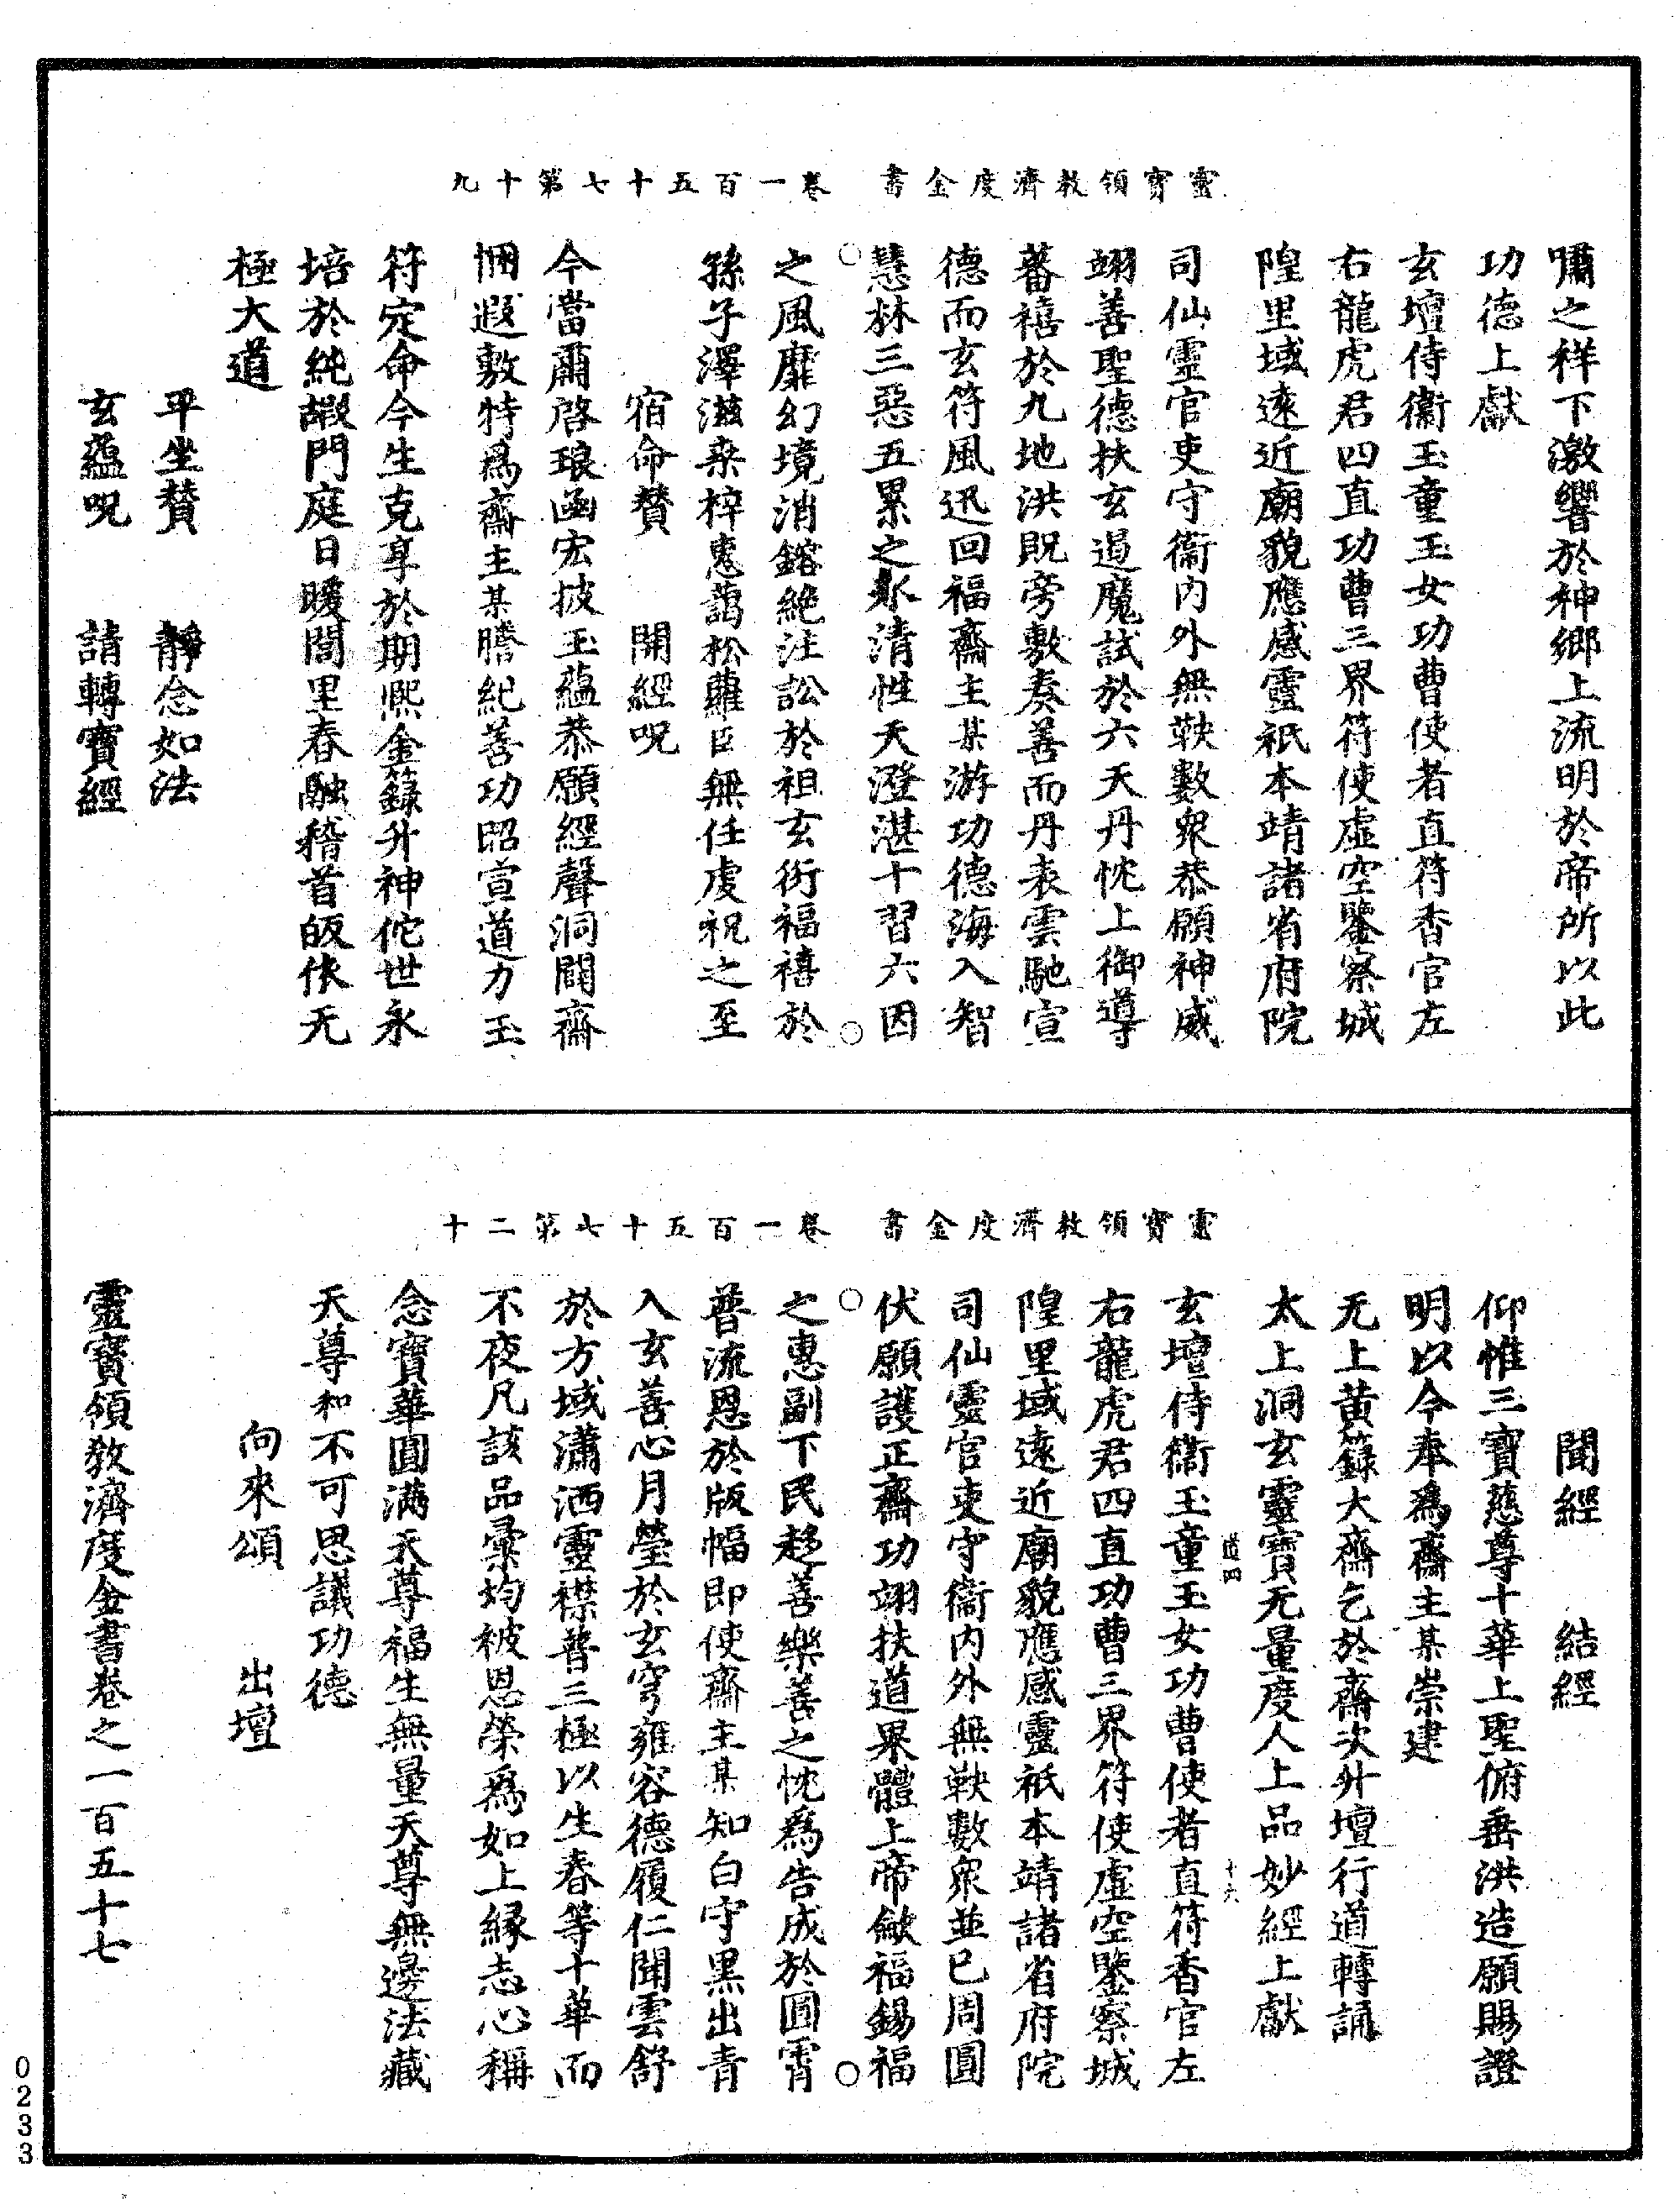 靈寶領教濟度金書　卷一百五十七第十九
嘯之祥下激響於神鄉上流明於帝所以此
功德上獻
玄壇侍衞玉童玉女功曹使者直符香官左
右龍虎君四直功曹三界符使虛空鑒察城
隍里域遠近廟貌應感靈祇本靖諸省府院
司仙靈官吏守衞內外無鞅數衆恭願神威
翊善聖德扶玄遏魔試於六天丹忱上御導
蕃禧於九地洪貺旁敷奏善而丹表雲馳宣
德而玄符風迅回福齋主某游功德海入智
慧林三惡五累之氷清性天澄湛十習六因
之風靡幻境消鎔絕注訟於祖玄衍福禧於
孫子澤滋桒梓惠藹松蘿臣無任虔祝之至
宿命贊　開經呪
今當肅啓琅函宏披玉蘊恭願經聲洞闢齋
悃遐敷特爲齋主某謄紀善功昭宣道力玉
符定命今生克享於期熈金籙升神佗世永
培於純嘏門庭日暖閭里春融稽首皈依无
極大道
平坐贊　靜念如法
玄蘊呪　請轉寶經
靈寶領教濟度金書　卷一百五十七第二十
聞經　結經
仰惟三寶慈尊十華上聖俯垂洪造願賜證
明以今奉爲齋主某崇建
无上黃籙大齋乞於齋次升壇行道轉誦
太上洞玄靈寶无量度人上品妙經上獻
道四　十六
玄壇侍衞玉童玉女功曹使者直符香官左
右龍虎君四直功曹三界符使虛空鑒察城
隍里域遠近廟貌應感靈祇本靖諸省府院
司仙靈官吏守衞內外無鞅數衆並已周圓
伏願護正齋功翊扶道果體上帝斂福錫福
之惠副下民趍善樂善之忱爲告成於圓霄
普流恩於版幅即使齋主某知白守黑出青
入玄善心月瑩於玄穹雍容德履仁聞雲舒
於方域瀟洒靈襟普三極以生春等十華而
不夜凡該品彙均被恩榮爲如上緣志心稱
念寶華圓滿天尊福生無量天尊無邊法藏
天尊和不可思議功德
向來頌　出壇
靈寶領敎濟度金書卷之一百五十七
0233